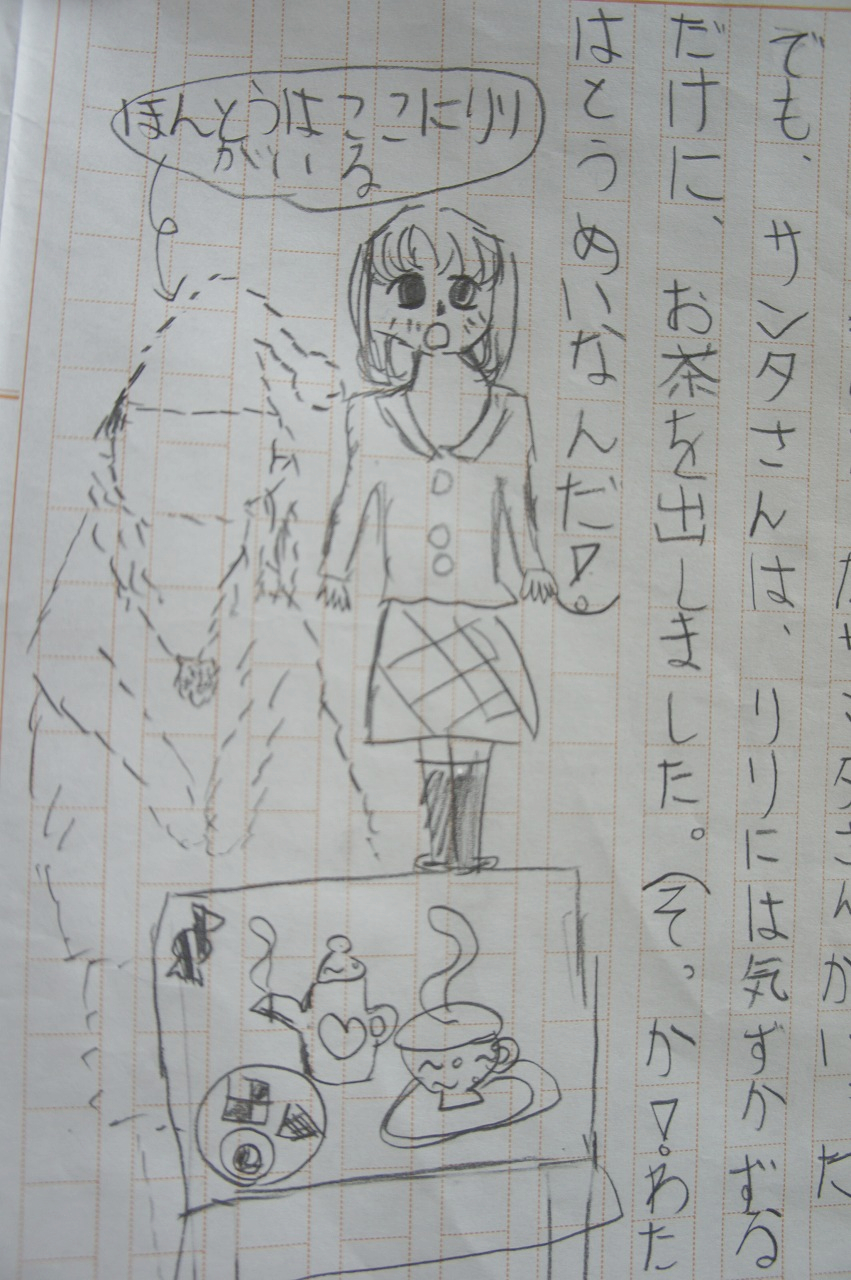 でも、サンタさんは、リリには気ずかずる
だけに、お茶を出しました。(そっか!わた
はとうめいなんだ!)
ほんとうはここにリリ
がいる